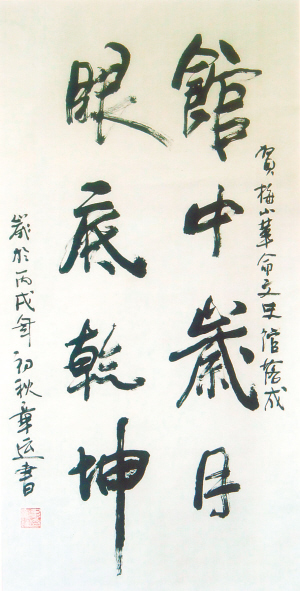 賀梅山革命文史馆落成
館中歲月
眼底乾坤
歲於丙戌年初秋章运書